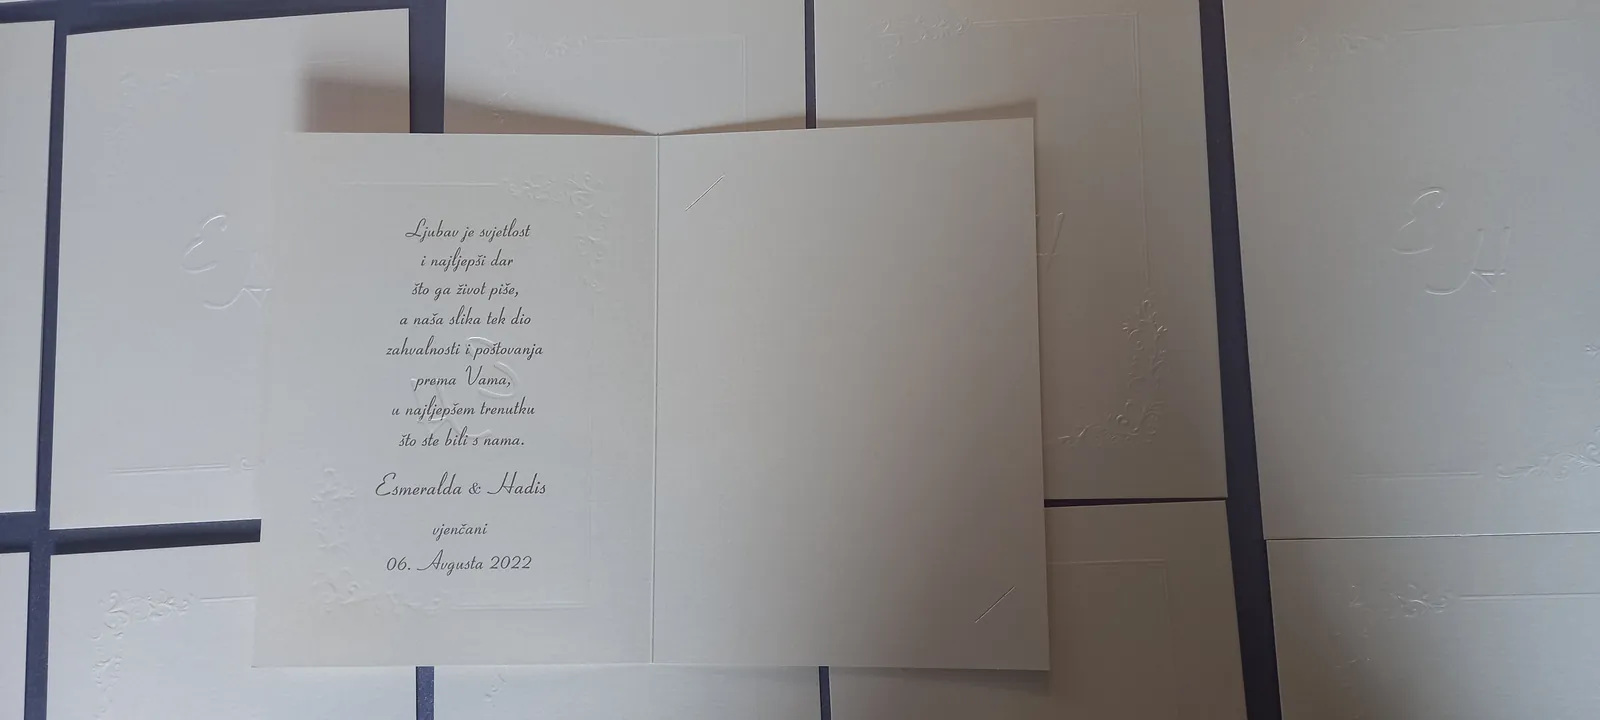 Ljubav je svjetlost
i najljepši dar
što ga život piše,
a naša slika tek dio
zahvalnosti i poštovanja
prema Vama,
u najljepšem trenutku
što ste bili s nama.
Esmeralda & Hadis
vjenčani
06. Avgusta 2022
E H
E H